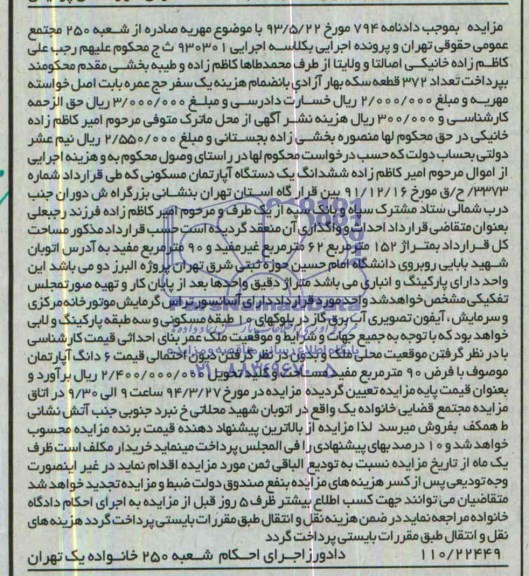 مزایده بموجب دادنامه ۷۹۴ مورخ ۹۳/۵/۲۲ با موضوع مهریه صادره از شعبه ۲۵۰ مجتمع
عمومی حقوقی تهران و پرونده اجرایی بکلاسه اجرایی ۹۳۰۳۰۱ ث ح محکوم علیهم رجب علی
کاظم زاده خانیکی اصالتا و ولایتا از طرف محمدطاها کاظم زاده و طیبه بخشی مقدم محکومند
بپرداخت تعداد ۳۷۲ قطعه سکه بهار آزادی بانضمام هزینه یک سفر حج عمره بابت اصل خواسته
مهریه و مبلغ ۲/۰۰۰/۰۰۰ ریال خسارت دادرسی و مبلغ ۳/۰۰۰/۰۰۰ ریال حق الزحمه
کارشناسی و ۳۰۰/۰۰۰ ریال هزینه نشر آگهی از محل ماترک متوفی مرحوم امیر کاظم زاده
خانیکی در حق محکوم لها منصوره بخشی زاده بجستانی و مبلغ ۲/۵۵۰/۰۰۰ ریال نیم عشر
دولتی بحساب دولت که حسب درخواست محکوم لها در راستای وصول محکوم به و هزینه اجرایی
از اموال مرحوم امیر کاظم زاده ششدانگ یک دستگاه آپارتمان مسکونی که طی قرارداد شماره
۳۳۷۳/ح/ق مورخ ۹۱/۱۲/۱۶ بین قرار گاه استان تهران بنشانی بزرگراه ش دوران جنب
درب شمالی ستاد مشترک سپاه و بانک سپه از یک طرف و مرحوم امیر کاظم زاده فرزند رجبعلی
بعنوان متقاضی قرارداد احداث و واگذاری آن منعقد گردیده است حسب قرارداد مذکور مساحت
کل قرارداد بمتراژ ۱۵۲ مترمربع ۶۲ مترمربع غیرمفید و ۹۰ مترمربع مفید به آدرس اتوبان
شهید بابایی روبروی دانشگاه امام حسین حوزه ثبتی شرق تهران پروژه البرز دو می باشد این
واحد دارای پارکینگ و انباری می باشد متراژ دقیق واحدها بعد از پایان کار و تهیه صورتمجلس
تفکیکی مشخص خواهد شد واحد مورد قرارداد دارای آسانسور تراس گرمایش موتورخانه مرکزی
و سرمایش، آیفون تصویری آب برق گاز در بلوکهای ۱۰ طبقه مسکونی و سه طبقه پارکینگ و لابی
خواهد بود که با توجه به جمیع جهات و شرایط و موقعیت ملک عمر بنای احداثی قیمت کارشناسی
با در نظر گرفتن موقعیت محلی ملک و بدون در نظر گرفتن دیون احتمالی قیمت ۶ دانگ آپارتمان
موصوف با فرض ۹۰ مترمربع مفید مساحت و کلید تحویل ۲/۴۰۰/۰۰۰/۰۰۰ ریال برآورد و
بعنوان قیمت پایه مزایده تعیین گردیده مزایده در مورخ ۹۴/۳/۲۷ ساعت ۹ الی ۹/۳۰ در اتاق
مزایده مجتمع قضایی خانواده یک واقع در اتوبان شهید محلاتی خ نبرد جنوبی جنب آتش نشانی
ط همکف بفروش میرسد لذا مزایده از بالاترین پیشنهاد دهنده قیمت برنده مزایده محسوب
خواهد شد و ۱۰ درصد بهای پیشنهادی را فی المجلس پرداخت مینماید خریدار مکلف است ظرف
یک ماه از تاریخ مزایده نسبت به تودیع الباقی ثمن مورد مزایده اقدام نماید در غیر اینصورت
وجه تودیعی پس از کسر هزینه های مزایده بنفع صندوق دولت ضبط و مزایده تجدید خواهد شد
متقاضیان می توانند جهت کسب اطلاع بیشتر ظرف ۵ روز قبل از مزایده به اجرای احکام دادگاه
خانواده مراجعه نماید در ضمن هزینه نقل و انتقال طبق مقررات بایستی پرداخت گردد هزینه های
نقل و انتقال طبق مقررات بایستی پرداخت گردد
۱۱۰/۲۲۴۴۹ دادورز اجرای احکام شعبه ۲۵۰ خانواده یک تهران